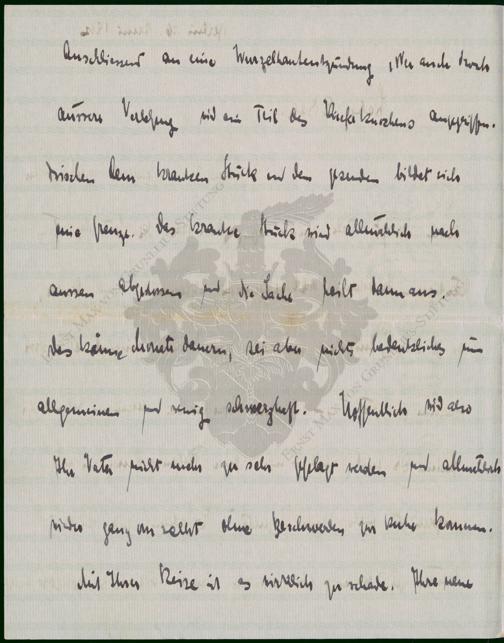 Anschliessend an eine Wurzelhautentzündung, oder auch durch
äussere Verletzung wird ein Teil des Kieferknochens angegriffen.
Zwischen dem kranken Stück und dem gesunden bildet sich
eine Grenze. Das kranke Stück wird allmählich nach
aussen abgestossen und die Sache heilt dann aus.
Das könne Monate dauern, sei aber nichts bedenkliches im
allgemeinen und wenig schmerzhaft. Hoffentlich wird also
Ihr Vater nicht mehr zu sehr geplagt werden und allmählich
wieder ganz von selbst ohne Beschwerden zur Ruhe kommen.
Mit Ihrer Reise ist es wirklich zu schade. Ihre neue
ERNST MAX VON GRUNELIUS-STIFTUNG
ERNST MAX VON GRUNELIUS-STIFTUNG